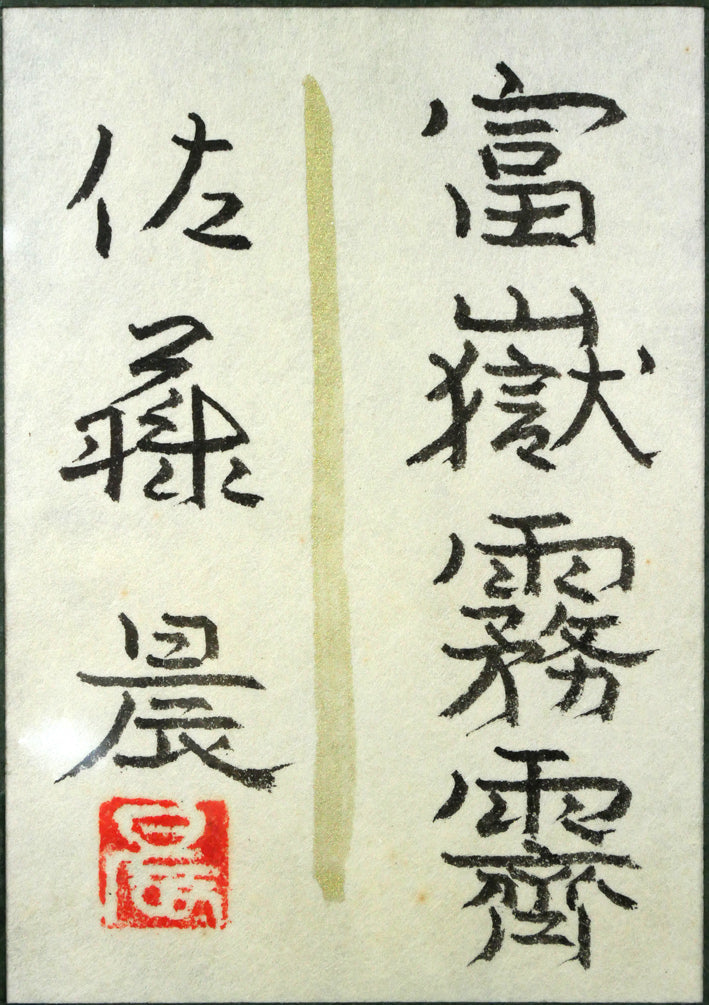 富嶽霧霽
佐藤晨
晨